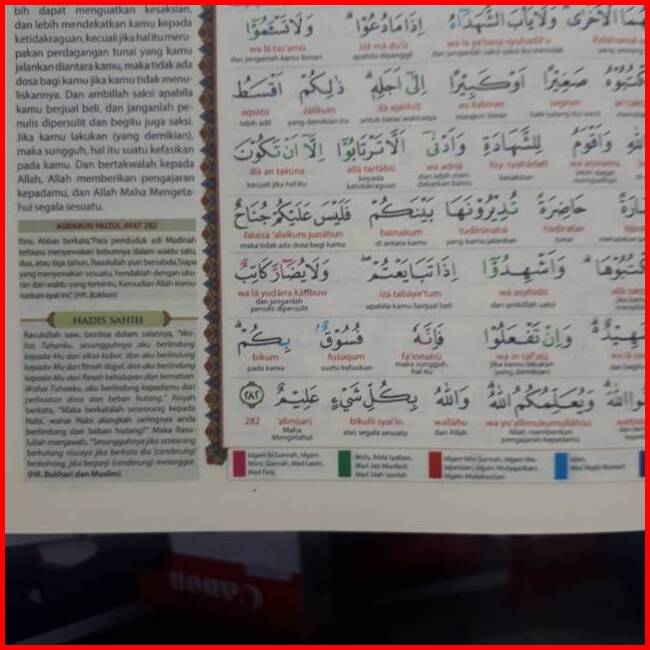 bih dapat menguatkan kesaksian,
dan lebih mendekatkan kamu kepada
ketidakraguan, kecuali jika hal itu meru-
pakan perdagangan tunai yang kamu
jalankan diantara kamu, maka tidak ada
dosa bagi kamu jika kamu tidak menu-
liskannya. Dan ambillah saksi apabila
kamu berjual beli, dan janganlah pe-
nulis dipersulit dan begitu juga saksi.
Jika kamu lakukan (yang demikian),
maka sungguh, hal itu suatu kefasikan
pada kamu. Dan bertakwalah kepada
Allah, Allah memberikan pengajaran
kepadamu, dan Allah Maha Mengeta-
hui segala sesuatu.
ASBABUN NUZUL AYAT 282
Ibnu Abbas berkata,"Para penduduk asli Madinah
terbiasa menyewakan kebunnya dalam waktu satu,
dua, atau tiga tahun, Rasulullah pun bersabda,'Siapa
yang menyewakan sesuatu, hendaklah dengan uku-
ran dan waktu yang tertentu, Kemudian Allah menu-
runkan ayat ini," (HR. Bukhari)
HADIS SAHIH
Rasulullah saw. berdoa dalam salatnya, "Wa-
hai Tuhanku, sesungguhnya aku berlindung
kepada-Mu dari siksa kubur, dan aku berlindung
kepada-Mu dari fitnah dajjal, dan aku berlindung
kepada-Mu dari fitnah kehidupan dan kematian.
Wahai Tuhanku, aku berlindung kepadamu dari
perbuatan dosa dan beban hutang." Aisyah
berkata, "Maka berkatalah seseorang kepada
Nabi, wahai Nabi alangkah seringnya anda
berlindung dari beban hutang?" Maka Rasu-
lullah menjawab, "Sesungguhnya jika seseorang
berhutang niscaya jika berkata dia (cenderung)
berbohong, jika berjanji (cenderung) melanggar.
(HR. Bukhari dan Muslim)
الْأُخْرٰى وَلَا يَأْبَ الشُّهَدَاۤءُ اِذَا مَا دُعُوْا وَلَا تَسْـَٔمُوْٓا
wa lā ya'basy-syuhadā'u iżā mā du'ū wa lā tas'amū
apabila dipanggil dan janganlah kamu bosan
صَغِيْرًا اَوْ كَبِيْرًا اِلٰٓى اَجَلِهٖ ذٰلِكُمْ اَقْسَطُ
ṣagīran au kabīran ilā ajalih(ī) żālikum aqsaṭu
maupun besar untuk batas waktunya yang demikian itu lebih adil
وَاَقْوَمُ لِلشَّهَادَةِ وَاَدْنٰىٓ اَلَّا تَرْتَابُوْٓا اِلَّآ اَنْ تَكُوْنَ
wa aqwamu lisy-syahādati wa adnā allā tartābū illā an takūna
kesaksian dan lebih mendekatkan kamu kepada ketidakraguan kecuali jika hal itu
حَاضِرَةً تُدِيْرُوْنَهَا بَيْنَكُمْ فَلَيْسَ عَلَيْكُمْ جُنَاحٌ
ḥāḍiratan tudīrūnahā bainakum falaisa 'alaikum junāḥun
tunai yang kamu jalankan di antara kamu maka tidak ada dosa bagi kamu
وَاَشْهِدُوْٓا اِذَا تَبَايَعْتُمْ وَلَا يُضَاۤرَّ كَاتِبٌ
wa asyhidū iżā tabāya'tum wa lā yuḍārra kātibuw
dan ambillah saksi apabila kamu berjual beli dan janganlah penulis dipersulit
وَاِنْ تَفْعَلُوْا فَاِنَّهٗ فُسُوْقٌۢ بِكُمْ
wa in taf'alū fa'innahū fusūqum bikum
jika kamu lakukan (yang demikian) maka sungguh, hal itu suatu kefasikan pada kamu
وَيُعَلِّمُكُمُ اللّٰهُ وَاللّٰهُ بِكُلِّ شَيْءٍ عَلِيْمٌ ٢٨٢
wa yu'allimukumullāh(u) wallāhu bikulli syai'in 'alīm(un) 282
Allah memberikan pengajaran kepadamu dan Allah atas segala sesuatu Maha Mengetahui
Canon